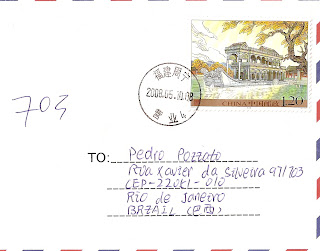 福建周宁
2008.05.10.08
营业 4
CHINA 中国邮政 1.20
703
TO: Pedro Pozzato
Rua Xavier da Silveira 97/703
CEP-22061-010
Rio de Janeiro
BRZAIL (巴西)